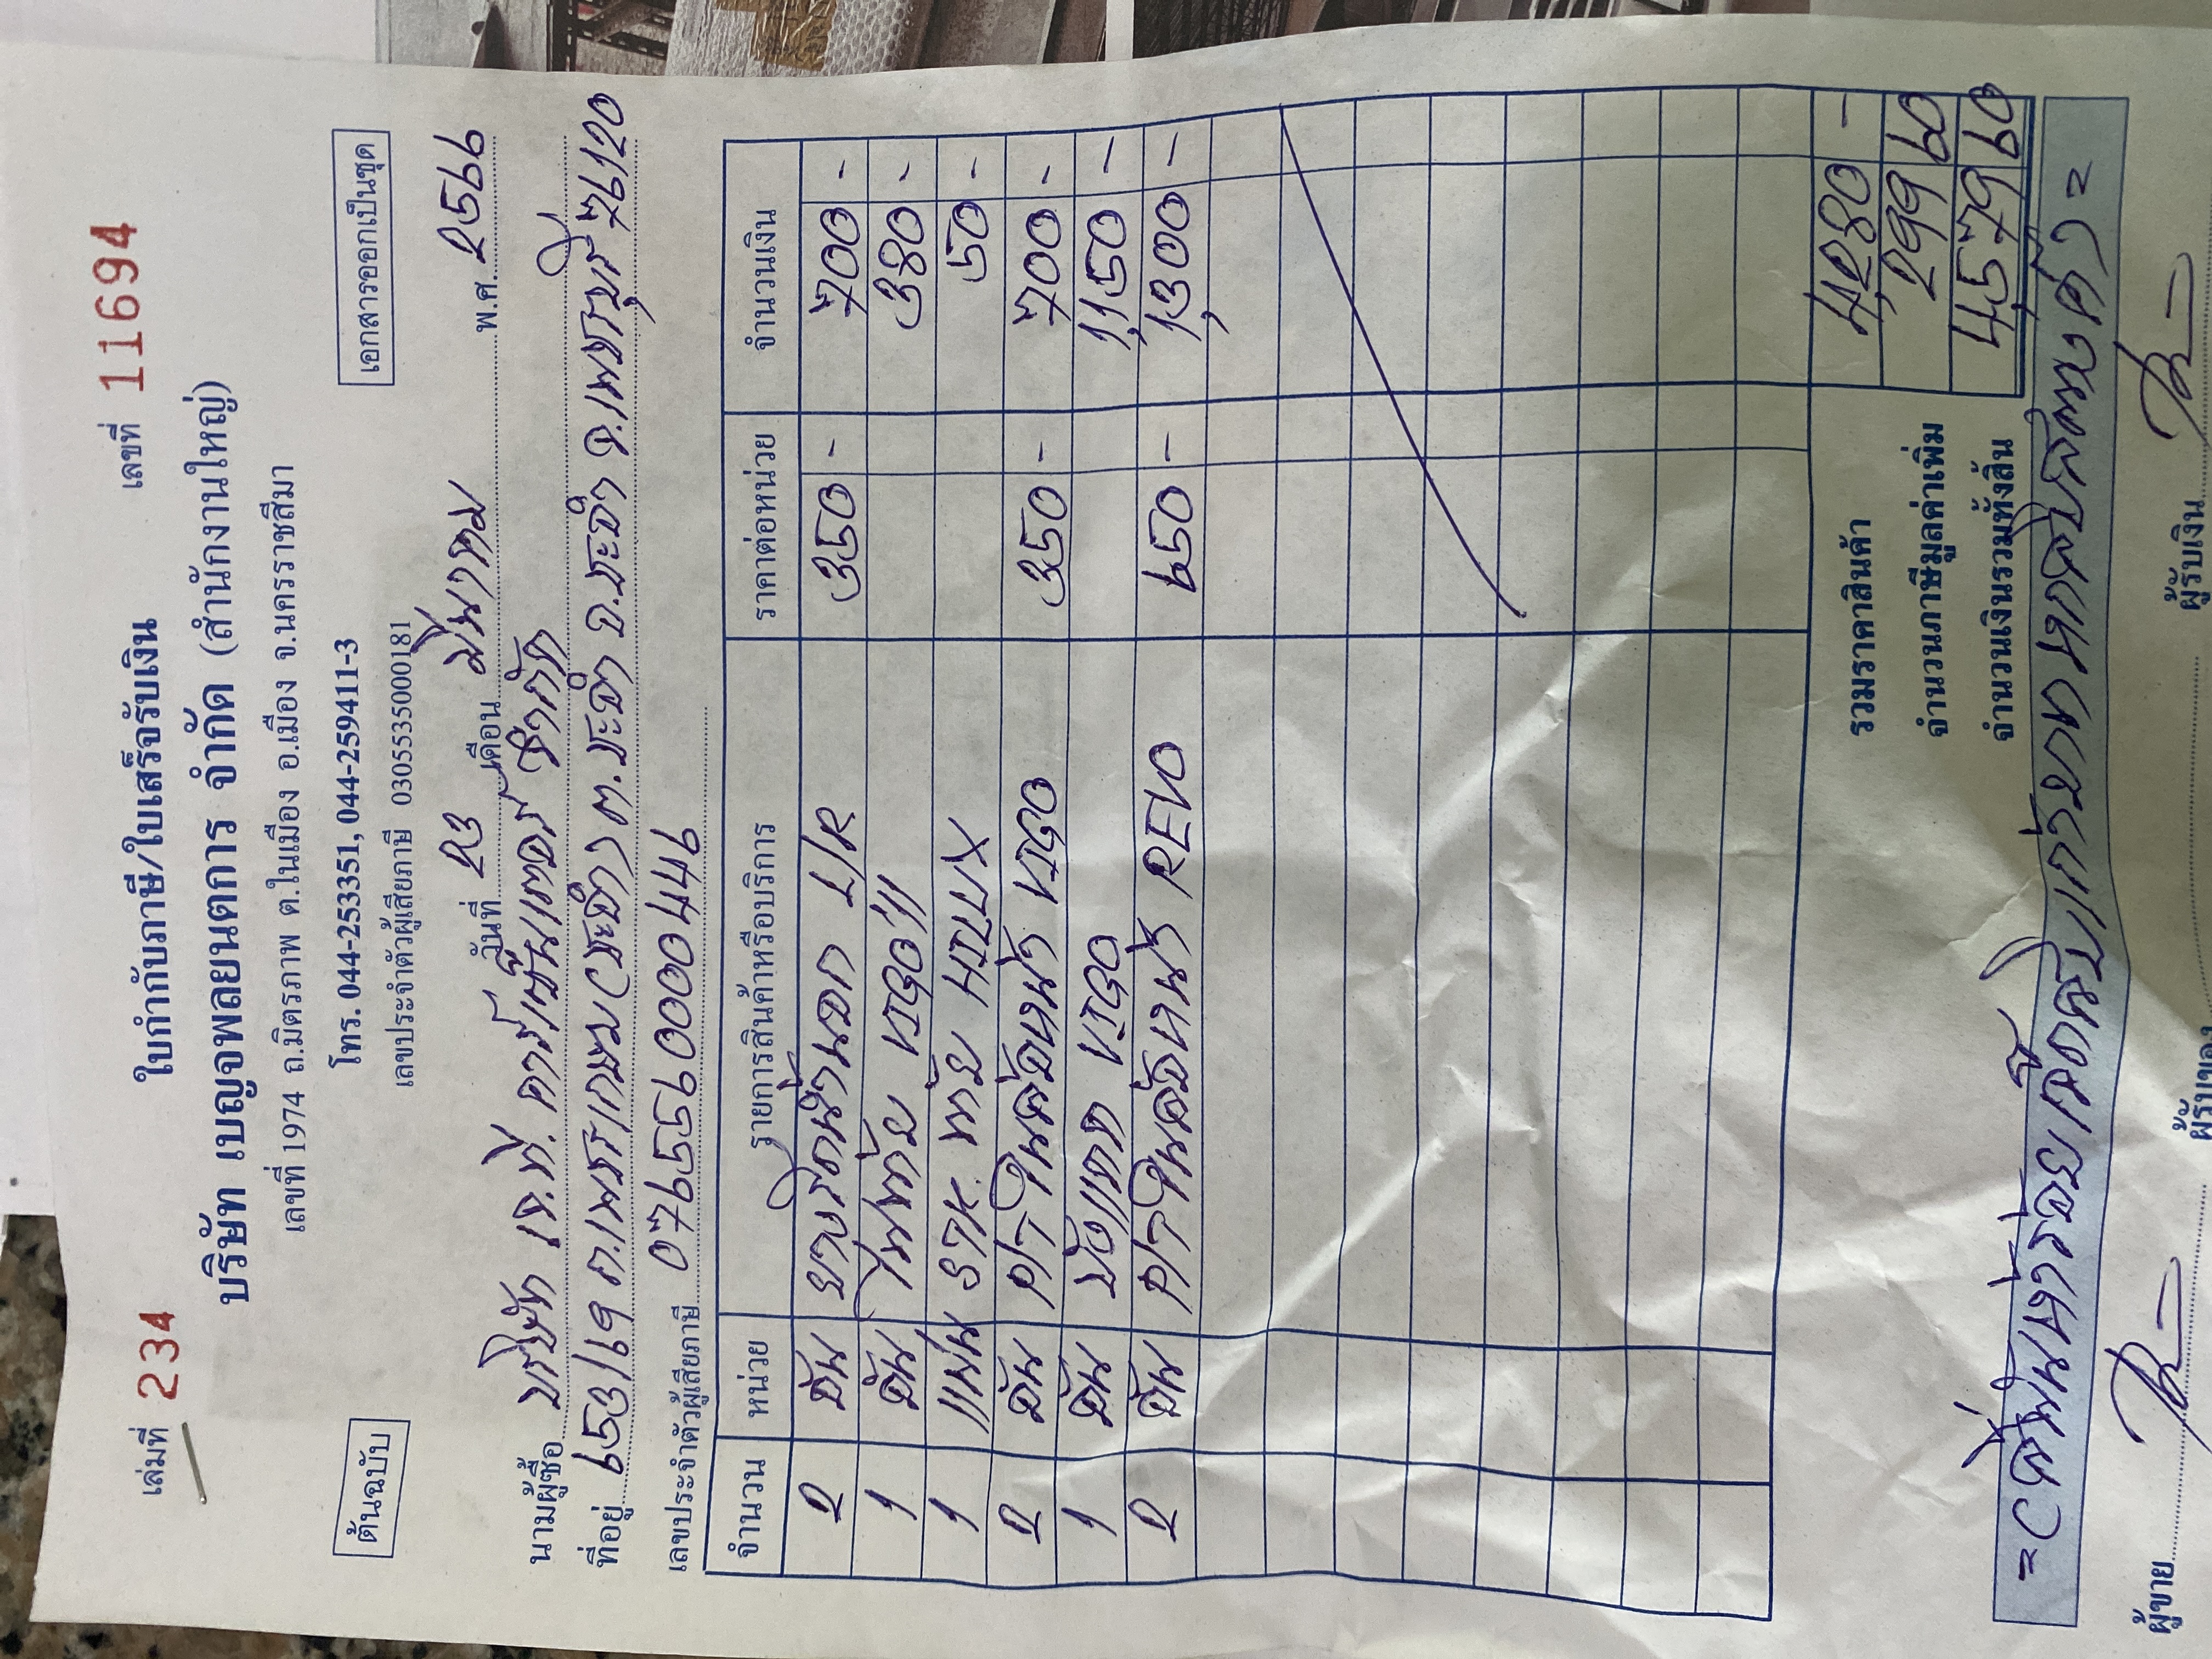 เล่มที่ 234 เลขที่ 11694
ใบกำกับภาษี/ใบเสร็จรับเงิน
บริษัท เบญจพลยนตการ จำกัด (สำนักงานใหญ่)
เลขที่ 1974 ถ.มิตรภาพ ต.ในเมือง อ.เมือง จ.นครราชสีมา
ต้นฉบับ โทร. 044-253351, 044-259411-3 เอกสารออกเป็นชุด
เลขประจำตัวผู้เสียภาษี 0305535000181
วันที่ 23 เดือน มีนาคม พ.ศ. 2566
นามผู้ซื้อ บริษัท เจ.ที. คาร์เซ็นเตอร์ จำกัด
ที่อยู่ 653/19 ถ.เพชรเกษม(ชะอำ) ต.ชะอำ อ.ชะอำ จ.เพชรบุรี 76120
เลขประจำตัวผู้เสียภาษี 0765590000449
จำนวน หน่วย รายการสินค้าหรือบริการ ราคาต่อหน่วย จำนวนเงิน
2 อัน ยางรีดน้ำนอก L/R 350 - 700 -
1 อัน ไฟท้าย VIGO 380 -
1 แผ่น STK. ท้าย 50 -
2 อัน 350 - 700 -
1 อัน VIGO 1,150 -
2 อัน REVO 650 - 1,300 -
รวมราคาสินค้า 4,280 -
จำนวนภาษีมูลค่าเพิ่ม 299 60
จำนวนเงินรวมทั้งสิ้น 4,579 60
=(สี่พันห้าร้อยเจ็ดสิบเก้าบาทหกสิบสตางค์)=
ผู้ขาย ผู้รับของ ผู้รับเงิน